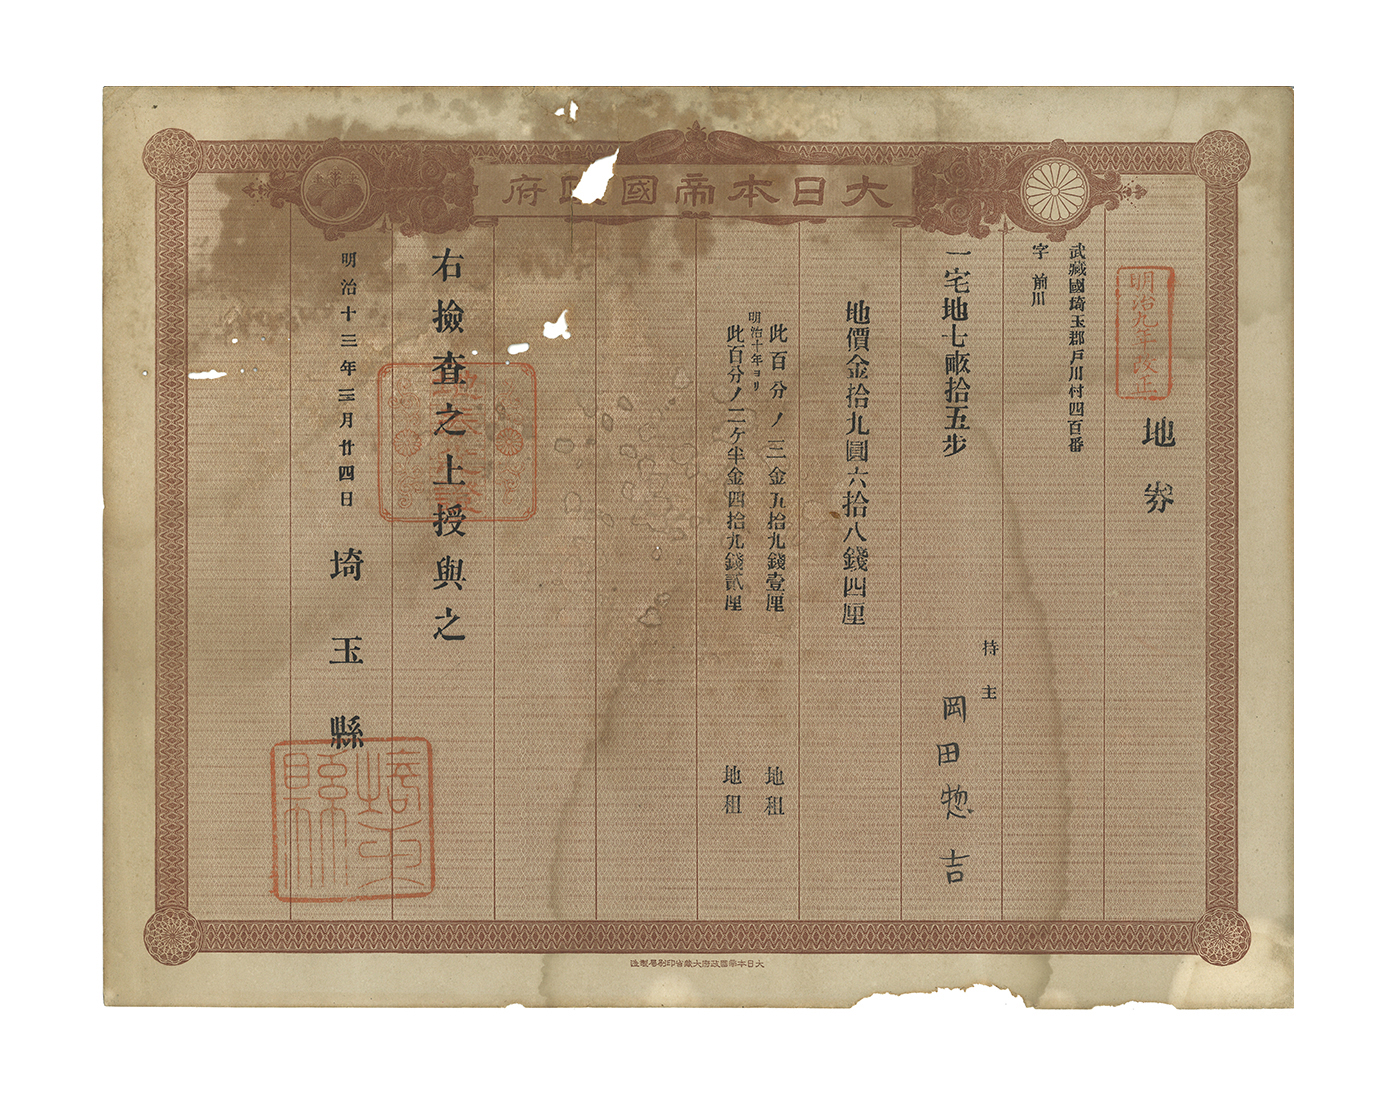 大日本帝國政府
明治九年改正
地券
武藏國埼玉郡戸川村四百番
字 前川
一宅地七畝拾五步
持主
岡田惣吉
地價金拾九圓六拾八錢四厘
此百分ノ三金五拾九錢壹厘 地租
明治十年ヨリ
此百分ノ二ケ半金四拾九錢貳厘 地租
右撿査之上授與之
明治十三年三月廿四日
埼玉縣
埼玉縣
大日本帝國政府大藏省印刷局製造